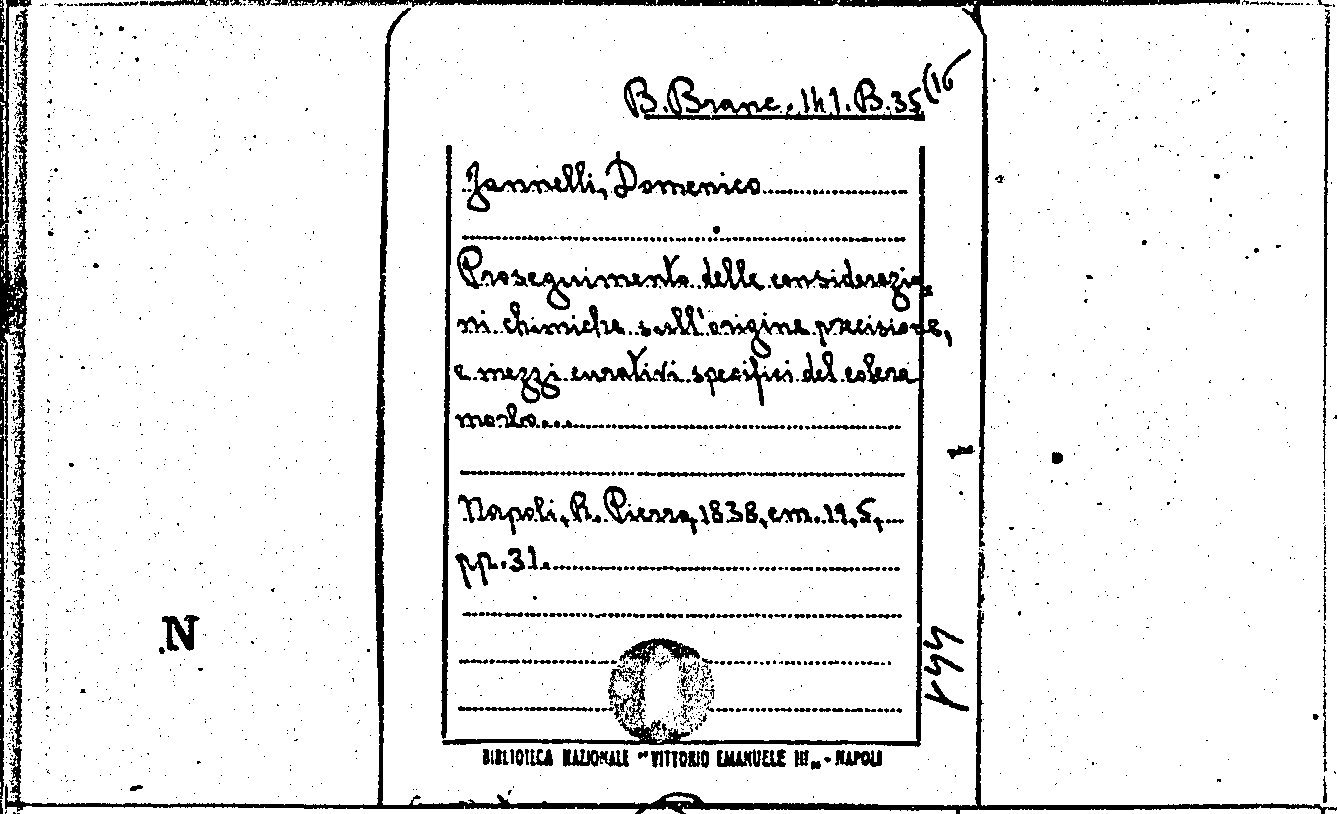 B. Branc. 141. B. 35 (16
Jannelli, Domenico
Proseguimento delle considerazio,
ni chimiche sull'origine precisione,
e mezzi curativi specifici del colera
morbo...
Napoli, R. Pierro, 1838, cm. 19,5,
pp. 31.
N
BIBLIOTECA NAZIONALE "VITTORIO EMANUELE III" - NAPOLI